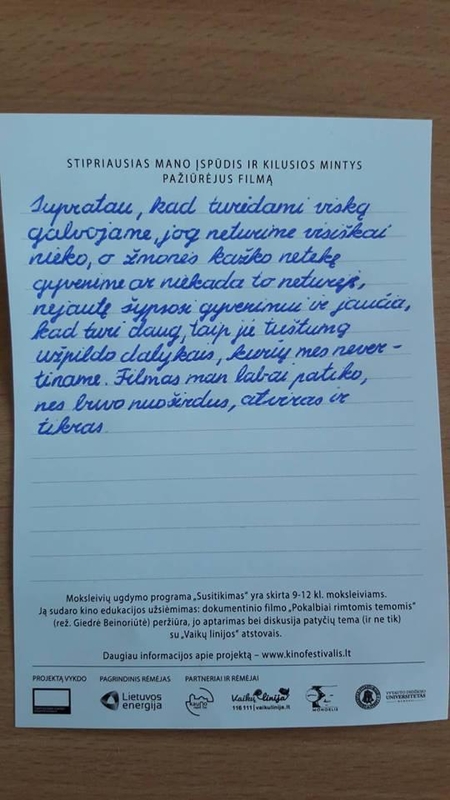 STIPRIAUSIAS MANO ĮSPŪDIS IR KILUSIOS MINTYS
PAŽIŪRĖJUS FILMĄ
Supratau, kad turėdami viską
galvojame, jog neturime visiškai
nieko, o žmonės kažko netekę
gyvenime ar niekada to neturėję,
nejautę šypsosi gyvenimui ir jaučia,
kad turi daug, taip jie tuštumą
užpildo dalykais, kurių mes never-
tiname. Filmas man labai patiko,
nes buvo nuoširdus, atviras ir
tikras
Moksleivių ugdymo programa „Susitikimas" yra skirta 9-12 kl. moksleiviams.
Ją sudaro kino edukacijos užsiėmimas: dokumentinio filmo „Pokalbiai rimtomis temomis"
(rež. Giedrė Beinoriūtė) peržiūra, jo aptarimas bei diskusija patyčių tema (ir ne tik)
su „Vaikų linijos" atstovais.
Daugiau informacijos apie projektą – www.kinofestivalis.lt
PROJEKTĄ VYKDO PAGRINDINIS RĖMĖJAS PARTNERIAI IR RĖMĖJAI
Lietuvos
energija
Vaikų linija
116 111 | vaikulinija.lt
MONOKLIS
VYTAUTO DIDŽIOJO
UNIVERSITETAS